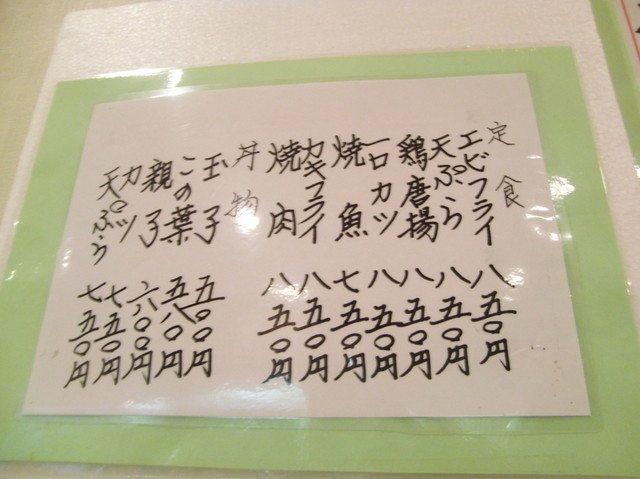 定食
エビフライ 八五〇円
天ぷら 八五〇円
鶏唐揚 八五〇円
一口カツ 八五〇円
焼魚 七五〇円
カキフライ 八五〇円
焼肉 八五〇円
丼物
玉子 五〇〇円
この葉 五八〇円
親子 六〇〇円
カツ 七五〇円
天ぷら 七五〇円